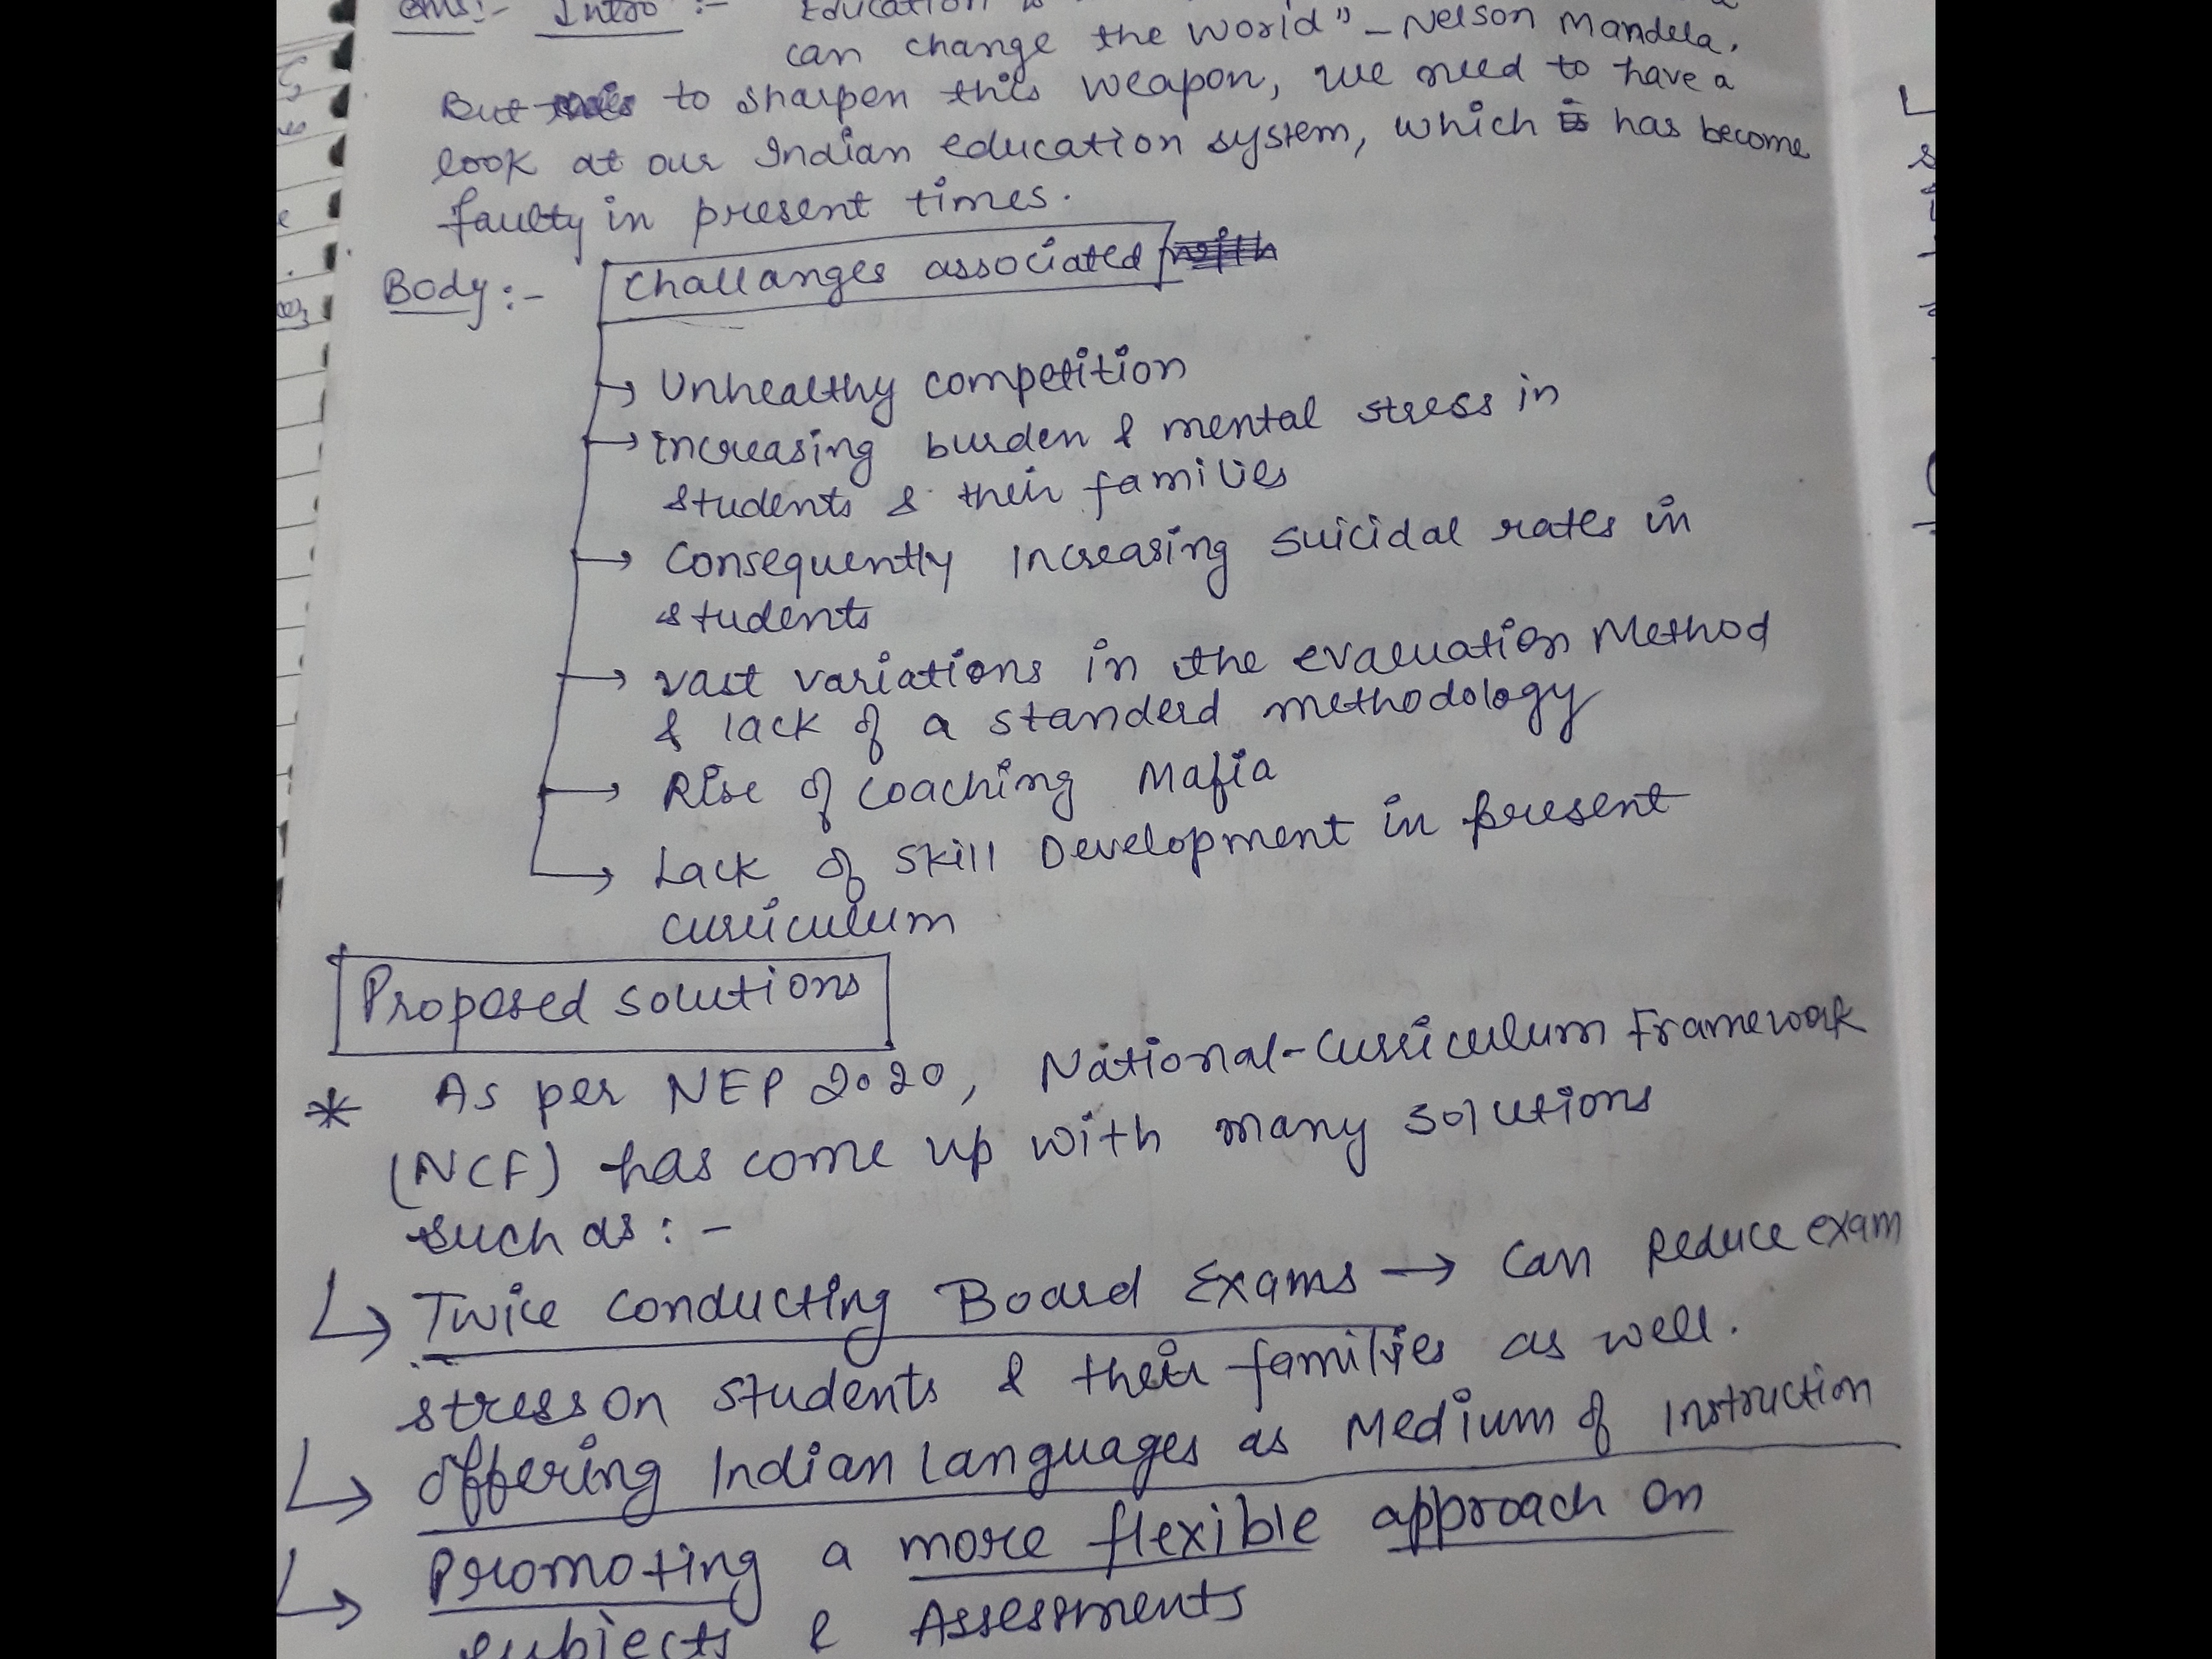 Ans:- Intro :- Education is
can change the world" - Nelson Mandela.
But to sharpen this weapon, we need to have a
look at our Indian education system, which is has become
faulty in present times.
Body :- Challanges associated with
→ Unhealthy competition
→ increasing burden & mental stress in
students & their families
→ Consequently Increasing suicidal rates in
students
→ vast variations in the evaluation Method
& lack of a standerd methodology
→ Rise of coaching Mafia
→ Lack of skill Development in present
curriculum
Proposed solutions
* As per NEP 2020, National-Curriculum Framework
(NCF) has come up with many solutions
such as :-
↳ Twice conducting Board Exams → Can Reduce exam
stress on students & their families as well.
↳ Offering Indian languages as Medium of Instruction
↳ Promoting a more flexible approach on
subjects & Assessments